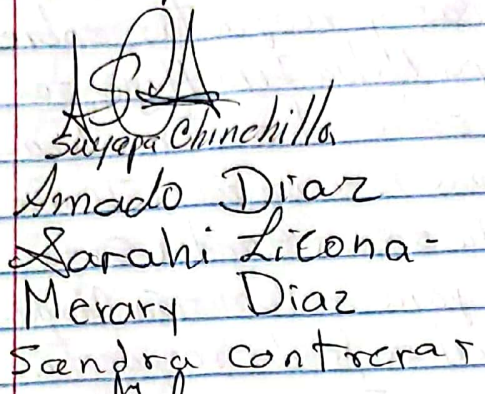 Suyapa Chinchilla
Amado Diaz
Sarahi Licona-
Merary Diaz
Sandra Contreras